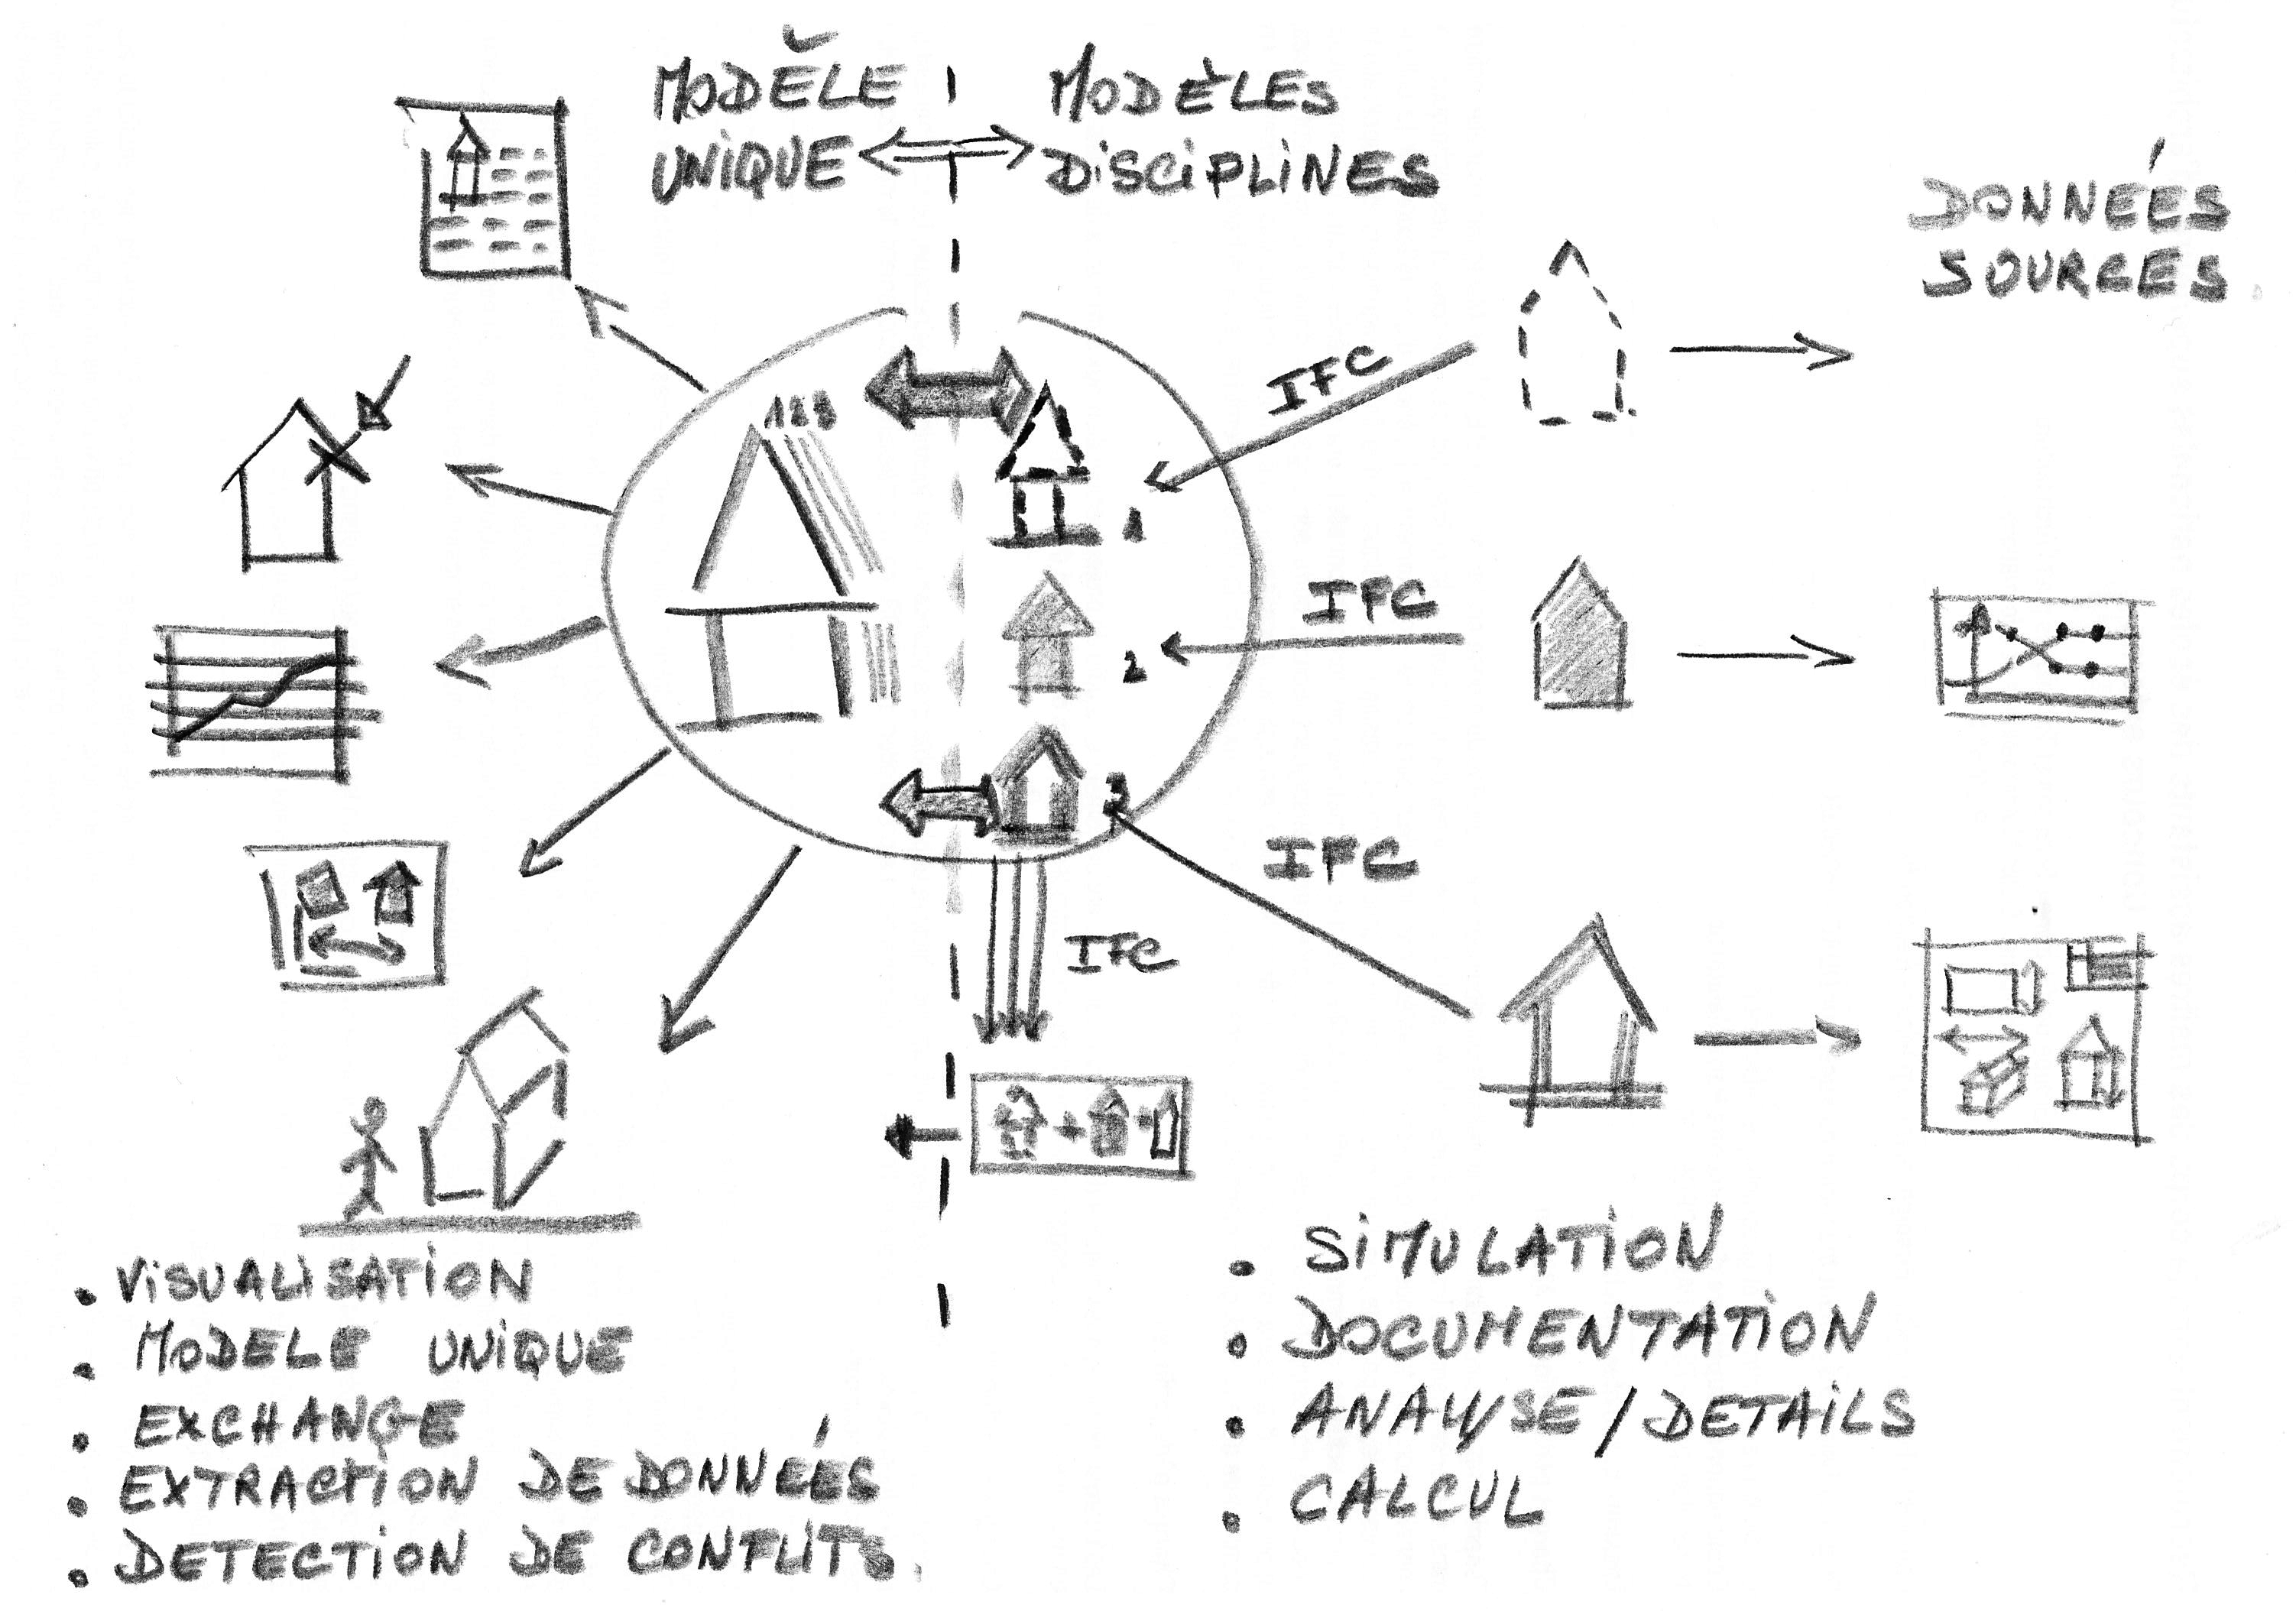 MODÈLE
UNIQUE
MODÈLES
DISCIPLINES
DONNÉES
SOURCES
IFC
123
1
IFC
2
3
IFC
IFC
. VISUALISATION
. MODELE UNIQUE
. EXCHANGE
. EXTRACTION DE DONNÉES
. DETECTION DE CONFLITS.
. SIMULATION
. DOCUMENTATION
. ANALYSE/DETAILS
. CALCUL